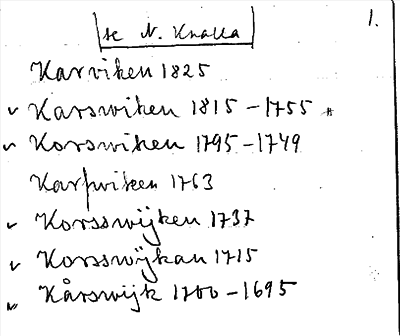 se N. Knalla
1.
Karviken 1825
v Karswiken 1815-1755 *
v Korswiken 1795-1749
Karſwiken 1763
v Korsswijken 1737
v Korsswijkan 1715
v Kårswijk 1700-1695